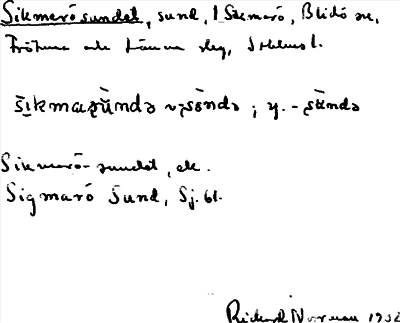 Sikmarösundet, sund, i Sikmarö, Blidö sn,
Frötuna och Länna slg, Sthlms l.
s̄i̱kmaʂùndə ~ʂöndə ; y. -ʂùndə
Sikmarö-sundet, ek.
Sigmarö Sund, Sj.61.
Rickard 1932